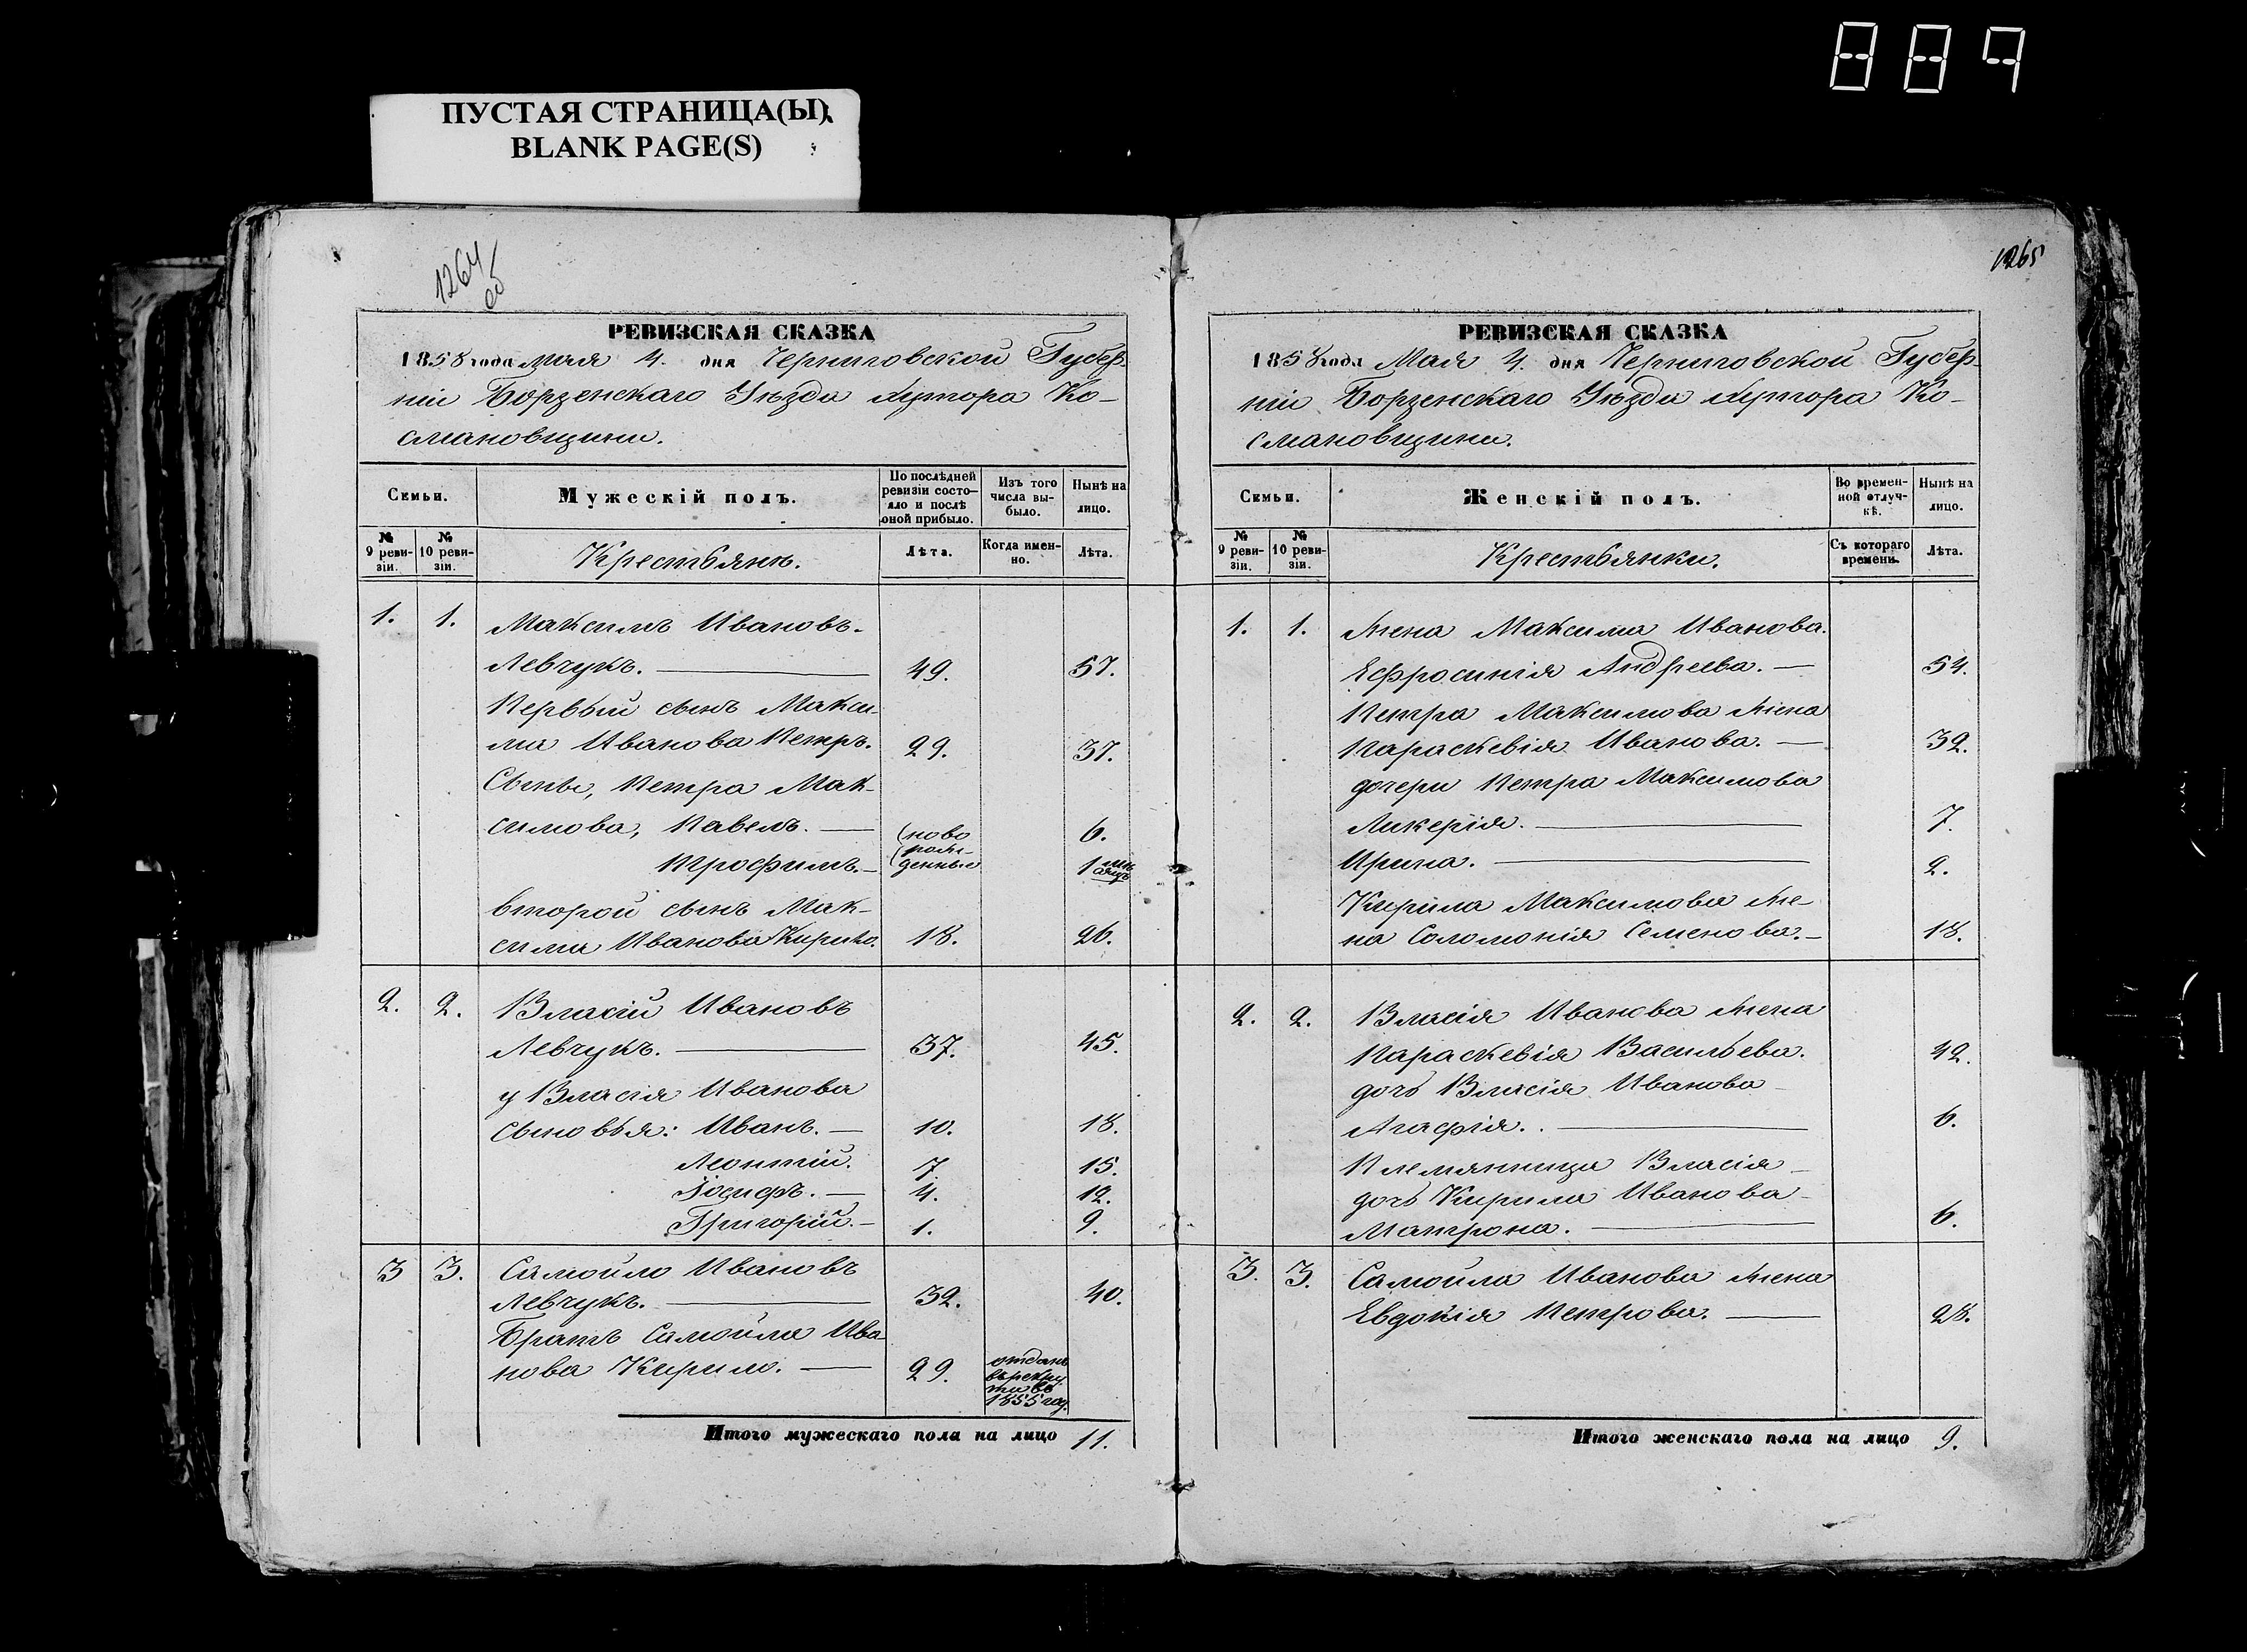 889
ПУСТАЯ СТРАНИЦА(Ы)
BLANK PAGE(S)
1264
об
РЕВИЗСКАЯ СКАЗКА
1858 года мая 4. дня Черниговской Губер-
ніи Борзенскаго Уѣзда Хутора Ко-
смановщини.
Семьи.
Мужескій полъ.
По послѣдней ревизіи состо-
яло и послѣ оной прибыло.
Изъ того числа вы-
было.
Нынѣ на лицо.
№ 9 реви-
зіи.
№ 10 реви-
зіи.
Крестьянъ.
Лѣта.
Когда имен-
но.
Лѣта.
1. 1. Максимъ Ивановъ.
Левчукъ. 49. 57.
Первый сынъ Макси-
ма Иванова Петръ. 29. 37.
Сыны, Петра Мак-
симова, Павелъ. ново 6.
рож-
Трофимъ. денные 1 мѣ
сяцъ
второй сынъ Мак-
сима Иванова Кирило. 18. 26.
2. 2. Власій Ивановъ
Левчукъ. 37. 45.
у Власія Иванова
сыновья: Иванъ. 10. 18.
Леонтій. 7 15.
Іосифъ. 4. 12.
Григорій. 1. 9.
3 3. Самойло Ивановъ
Левчукъ. 32. 40.
Братъ Самойла Ива
нова Кирило. 29. отданъ
въ рекру
ты въ
1855 год.
Итого мужескаго пола на лицо 11.
1265
РЕВИЗСКАЯ СКАЗКА
1858 года Мая 4. дня Черниговской Губер-
ніи Борзенскаго Уѣзда Хутора Ко-
смановщини.
Семьи.
Женскій полъ.
Во времен-
ной отлуч-
кѣ.
Нынѣ на лицо.
№ 9 реви-
зіи.
№ 10 реви-
зіи.
Крестьянки.
Съ котораго времени.
Лѣта.
1. 1. Жена Максима Иванова.
Ефросинія Андреева. 54.
Петра Максимова жена
Параскевія Иванова. 32.
дочери Петра Максимова
Ликерія. 7.
Ирина. 2.
Кирила Максимова же-
на Соломонія Семенова. 18.
2. 2. Власія Иванова жена
Параскевія Васильева. 42.
дочь Власія Иванова
Агафія. 6.
Племянница Власія
дочь Кирила Иванова
Матрона. 6.
3. 3. Самойла Иванова жена
Евдокія Петрова. 28.
Итого женскаго пола на лицо 9.